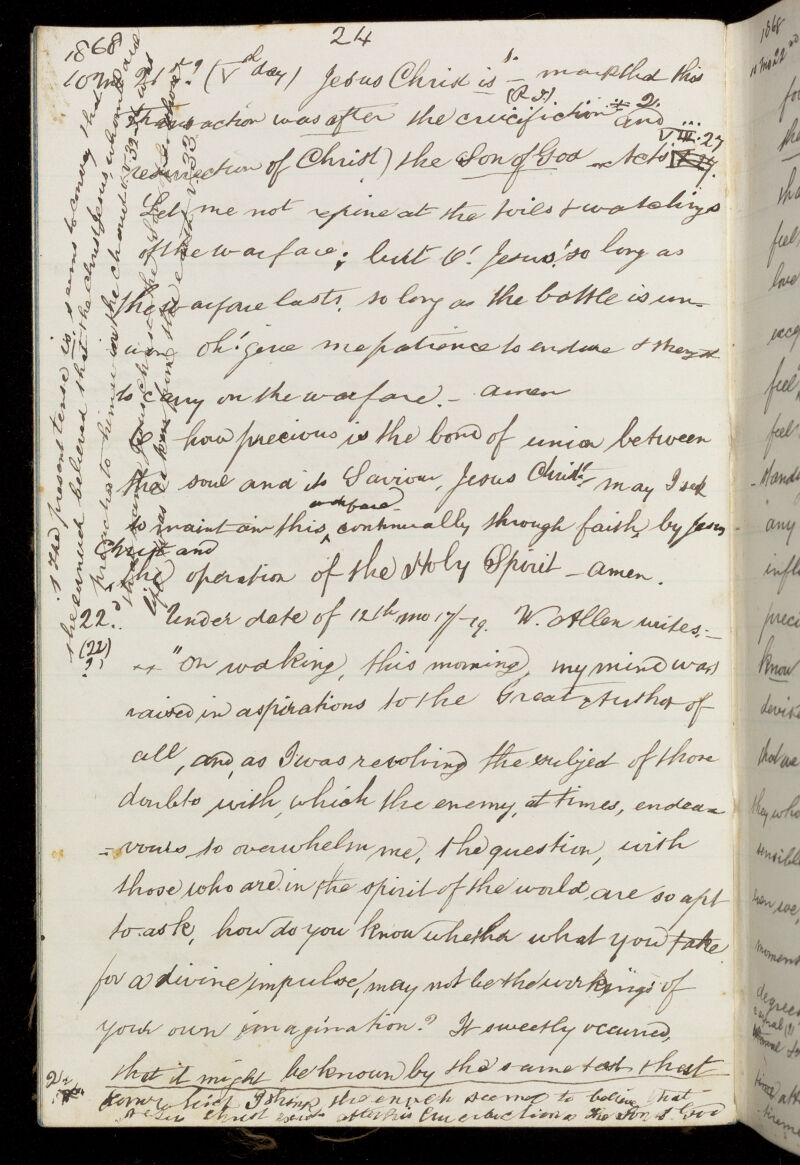 24
1868
10 mo 21st? (Vd day) Jesus Christ is 1. – mark that this
transaction was after the crucifiction (P.S) and 2.
resurrection of Christ) the Son of God – Acts VIII. 27
Let me not repine at the toils & watchings
of the warfare; but O! Jesus! so long as
the warfare lasts, so long as the battle is un-
won oh! give me patience to endure & strength
to carry on the warfare. – amen
O how precious is the bond of union between
the soul and its Saviour, Jesus Christ – may I seek
to maintain this continually through faith, by Jesus
Christ and
the operation of the Holy Spirit – amen.
22.d Under date of 12th mo 17/–19. W. Allen writes:–
(22)
"On waking, this morning, my mind was
raised in aspirations to the Great Author of
all, and, as I was revolving the subject of those
doubts with, which the enemy, at times, endea=
=vours to overwhelm me, the question, with
those who are in the spirit of the world, are so apt
to ask, how do you know whether what you take
for a divine impulse, may not be the workings of
your own imagination? It sweetly occurred,
that it might be known by the same test that
2. I think the eunuch seemed to believe that
Jesus Christ after his crucifiction is the Son of God
1 The present tense is, seems to convey that
the eunuch believed that the Christ Jesus whom
preached to him in the chariot v. 32
life was taken from the earth v. 33